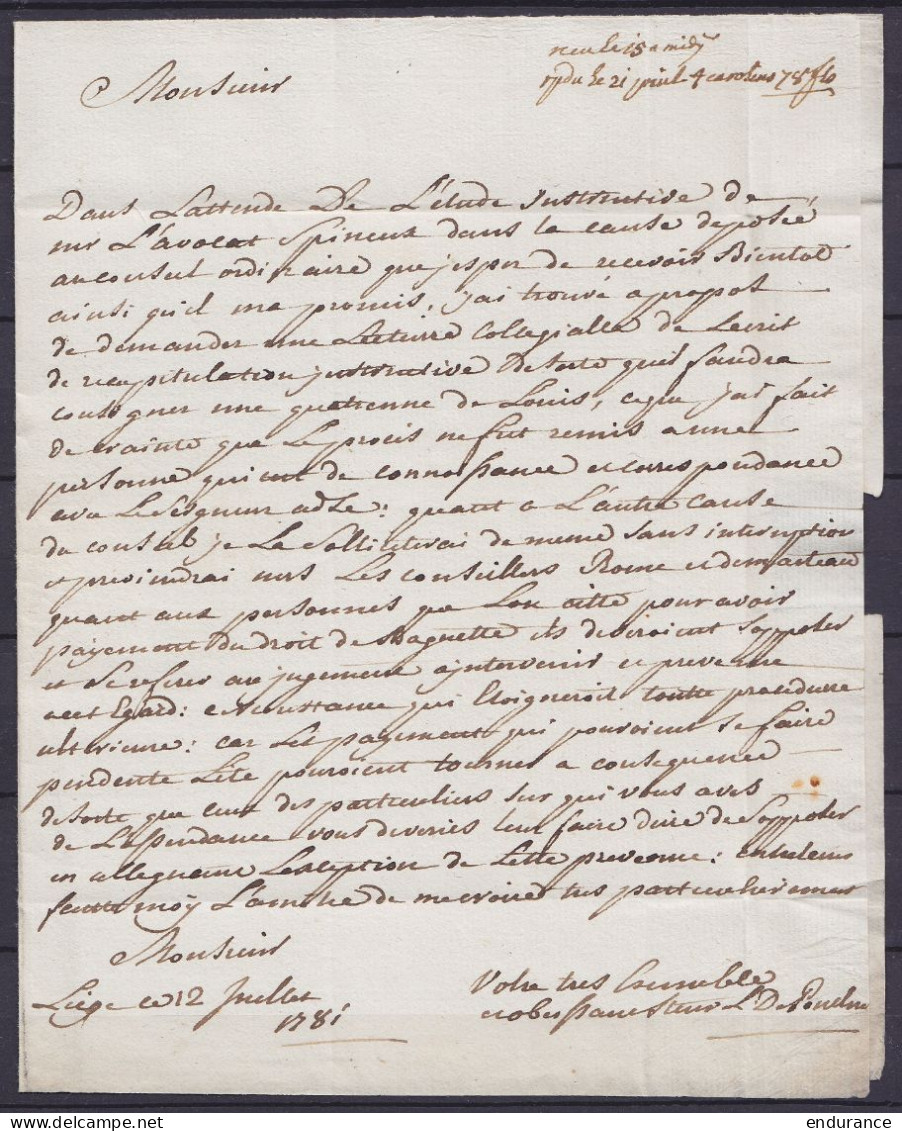 receu le 15 a midy
rpdu le 21 joint 4 carolins 78
Monsieur
Dans Lattende De L'étude Instructive de
mr L'avocat Spineux dans la cause deposée
au conseil ordinaire que j'esper de recevoir Bientot
ainsi qu'il ma promis, j'ai trouvé apropot
de demander une Lecture Collegialle de Lecrit
de recapitulation justructive desorte quil faudra
consigner une quatrenne de Louis, ce que j'ai fait
de crainte que Le procès ne fut remis a une
personne qui eut de connoissance et correspondance
avec Le Seigneur adse: quant a L'autre cause
du conseil je La solliciterai de meme sans interuption
et previendrai mrs Les conseillers Rome et demarteau
quant aux personnes que Lon citte pour avoir
payement du droit de Raguette ils devroient sopposer
et se referer au jugement a jntervenir et prevenne
a cet Egard: circonstance qui Eloigneroit toutte procedure
ulterieure: car Les payement qui pouroient se faire
pendente Lite pouroient tourner a consequence
desorte que ceux des particuliers sur qui vous aves
de Lespendance vous deveries leur faire dire de sopposer
en alleguant Lexception de Litte prevenue:
faitte moÿ L'amitié de me croire tres particulierement
Monsieur
Liége ce 12 Juillet
1781
Votre tres humble
et obeissant Serviteur
endurance